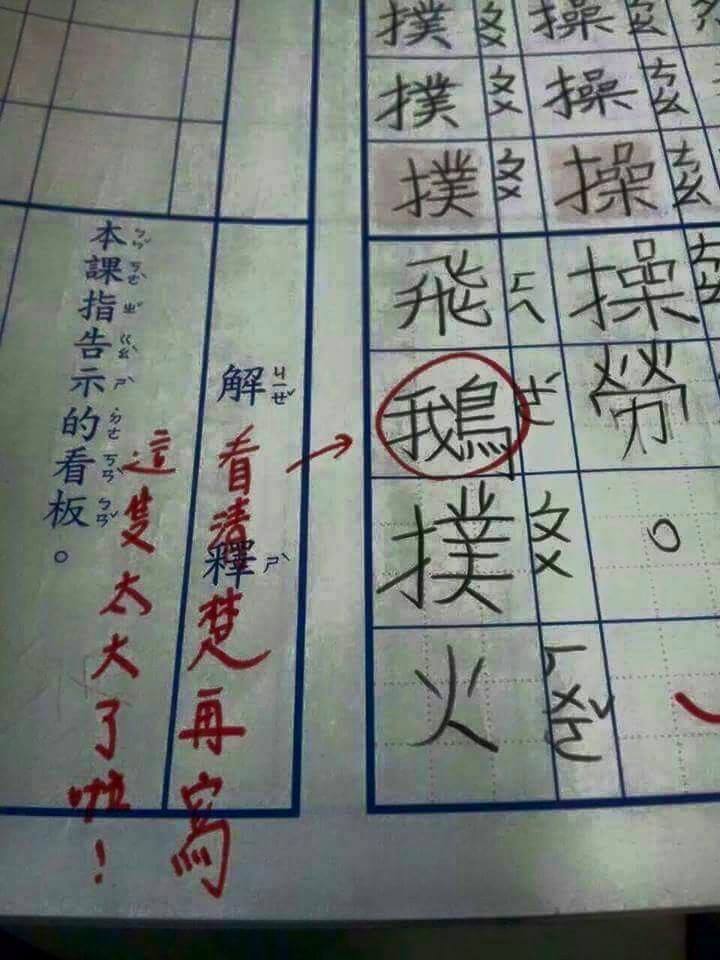 操操操操勞。
ㄘㄠ ㄘㄠ ㄘㄠ ㄘㄠ
撲撲撲飛鵝撲火
ㄆㄨ ㄆㄨ ㄆㄨ ㄈㄟ ㄆㄨ ㄏㄨㄛˇ
解釋
ㄐㄧㄝˇ ㄕˋ
看清楚再寫
這隻太大了啦！
本課指告示的看板。
ㄅㄣˇ ㄎㄜˋ ㄓˇ ㄍㄠˋ ㄕˋ ㄉㄜ˙ ㄎㄢˋ ㄅㄢˇ